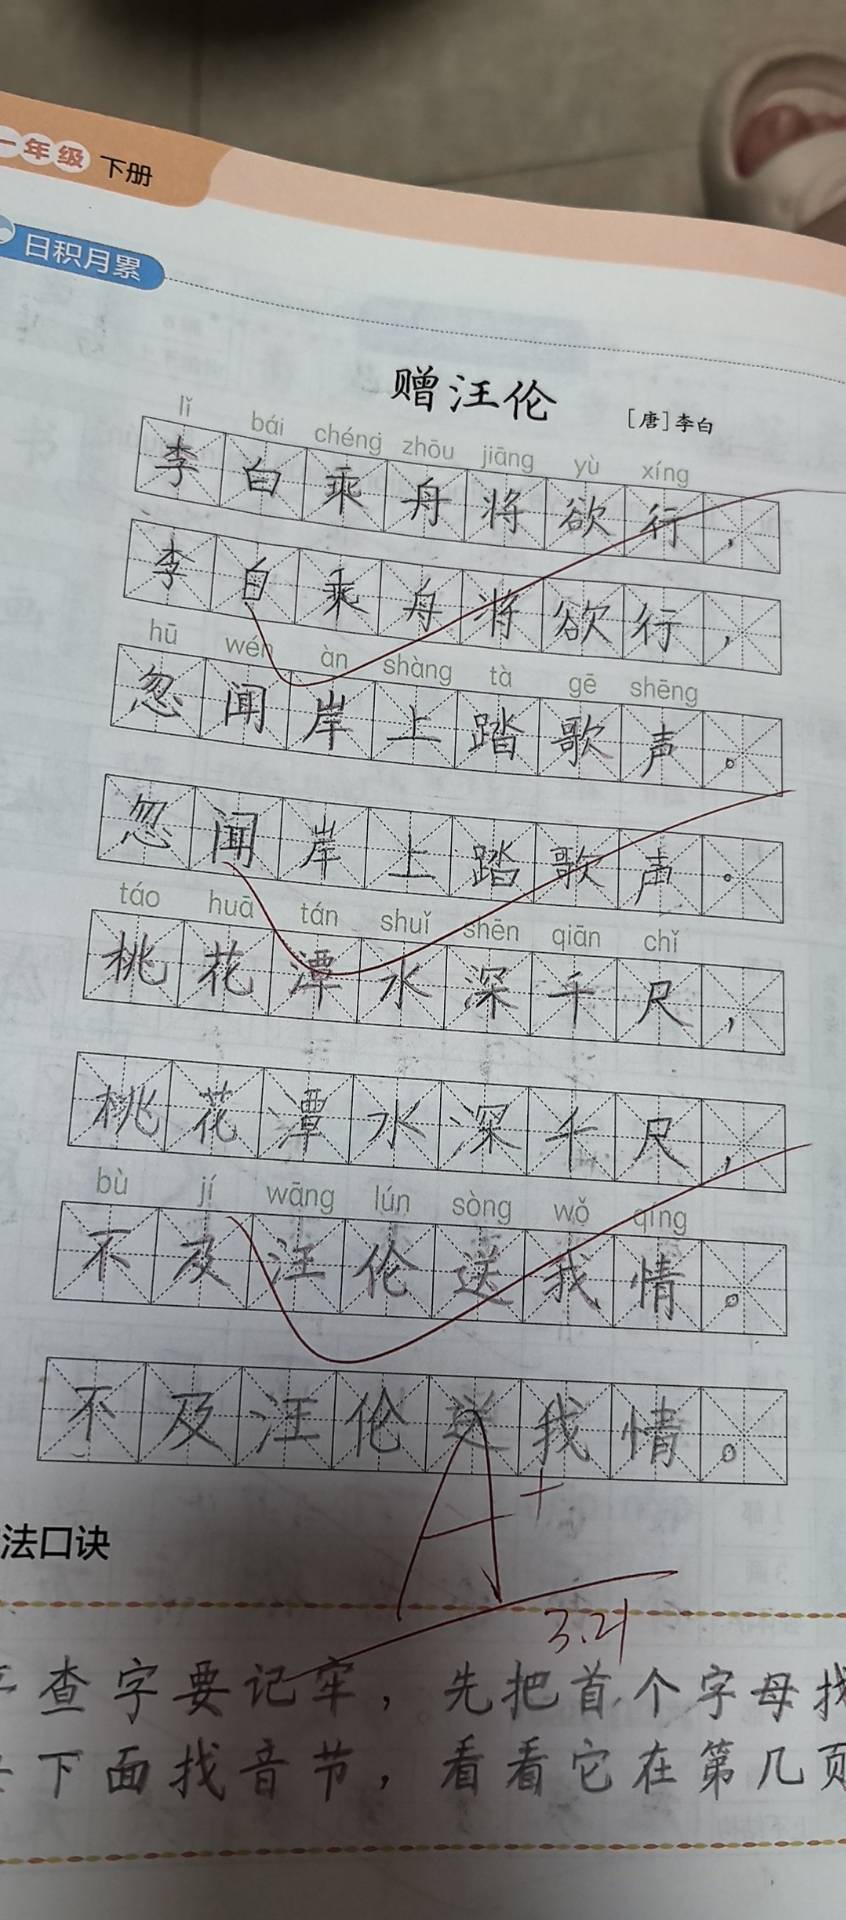 一年级 下册
日积月累
赠汪伦
[唐]李白
lǐ bái chéng zhōu jiāng yù xíng
李白乘舟将欲行，
李白乘舟将欲行，
hū wén àn shàng tà gē shēng
忽闻岸上踏歌声。
忽闻岸上踏歌声。
táo huā tán shuǐ shēn qiān chǐ
桃花潭水深千尺，
桃花潭水深千尺，
bù jí wāng lún sòng wǒ qíng
不及汪伦送我情。
不及汪伦送我情。
A+
3.21
法口诀
查字要记牢，先把首个字母找
下面找音节，看看它在第几页